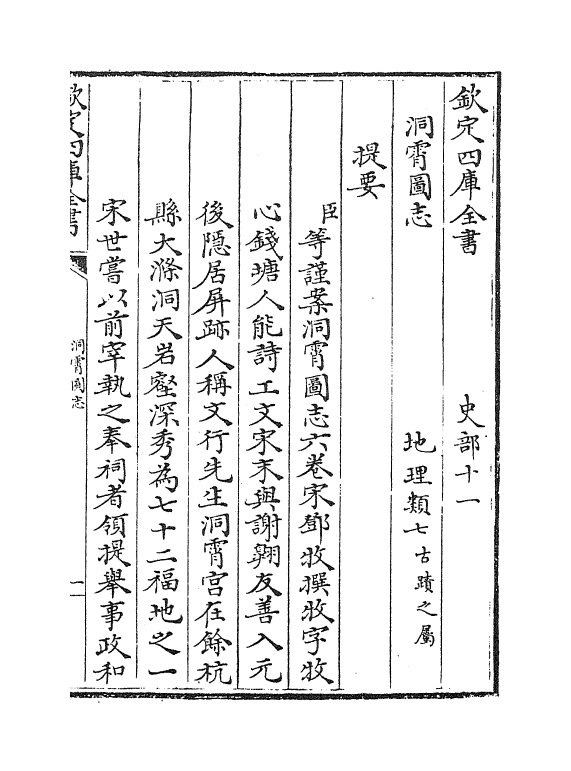 欽定四庫全書　史部十一
洞霄圖志　地理類七古蹟之屬
提要
臣等謹案洞霄圖志六卷宋鄧牧撰牧字牧
心錢塘人能詩工文宋末與謝翱友善入元
後隱居屏跡人稱文行先生洞霄宮在餘杭
縣大滌洞天岩壑深秀為七十二福地之一
宋世嘗以前宰執之奉祠者領提舉事政和
欽定四庫全書　洞霄圖志　一